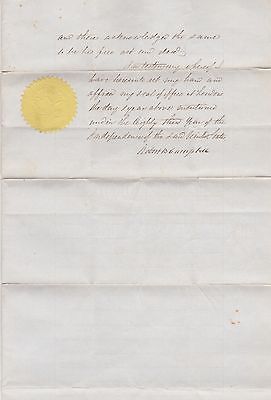 and there acknowledged the same
to be his free act and deed.
In testimony whereof I
have hereunto set my hand and
affixed my seal of office at London
the day & year above mentioned
and in the Eighty third Year of the
Independence of the said United States
Robt B Campbell